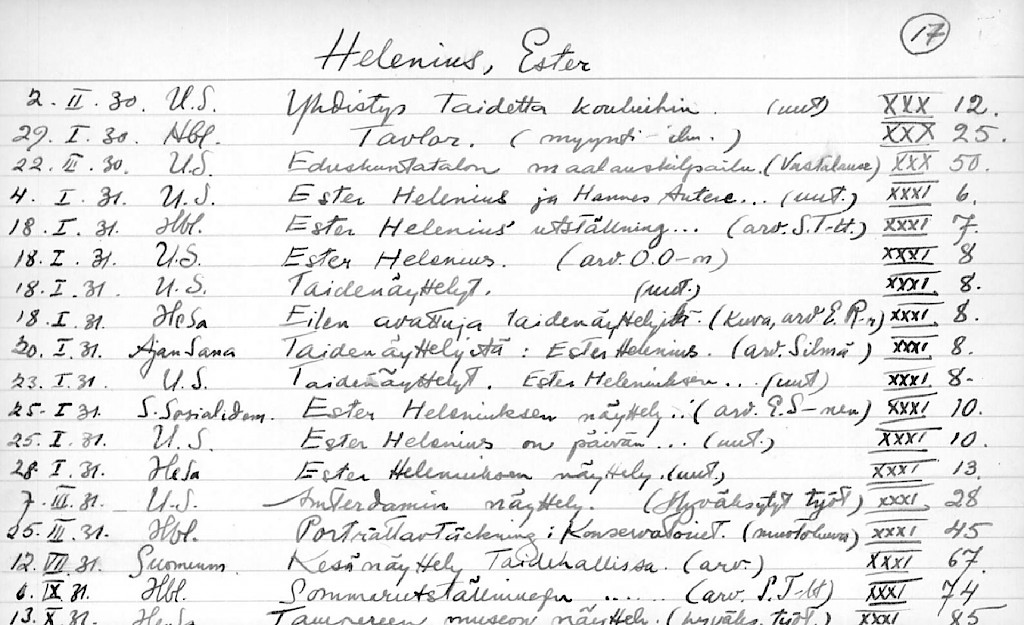 17
Helenius, Ester
2. II. 30. U.S. Yhdistys Taidetta kouluihin. (uut) XXX 12.
29. I. 30. Hbl. Tavlor. (myynti-ilm.) XXX 25.
22. II. 30. U.S. Eduskuntatalon maalauskilpailu. (Vastalause) XXX 50.
4. I. 31. U.S. Ester Helenius ja Hannes Autere... (uut.) XXXI 6.
18. I. 31. Hbl. Ester Helenius' utställning... (arv. S.T-lt.) XXXI 7.
18. I. 31. U.S. Ester Helenius. (arv. O.O-n) XXXI 8
18. I. 31. U.S. Taidenäyttelyt. (uut.) XXXI 8.
18. I. 31. HeSa Eilen avattuja taidenäyttelyitä. (Kuva, arv E. R-n) XXXI 8.
20. I. 31. Ajan Sana Taidenäyttelyistä: Ester Helenius. (arv. Silmä) XXXI 8.
23. I. 31. U.S. Taidenäyttelyt. Ester Heleniuksen... (uut) XXXI 8.
25. I 31. S. Sosialidem. Ester Heleniuksen näyttely... (arv. E.S-nen) XXXI 10.
25. I. 31. U.S. Ester Helenius on päivän... (uut.) XXXI 10.
28. I. 31. HeSa Ester Heleniuksen näyttely. (uut.) XXXI 13.
7. III. 31. U.S. Amsterdamin näyttely. (Hyväksytyt työt) XXXI 28
25. III. 31. Hbl. Porträttavtäckning i Konservatoriet. (muotokuva) XXXI 45
12. VII 31. Suomenm. Kesänäyttely Taidehallissa. (arv.) XXXI 67.
6. IX. 31. Hbl. Sommarutställningen ...... (arv. S.T-lt) XXXI 74
13. X. 31. HeSa Tampereen museon näyttely. (hyväks. työt.) XXXI 85